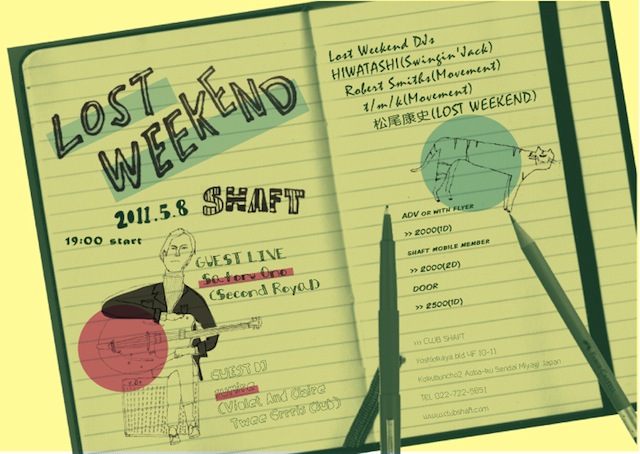 LOST
WEEKEND
2011.5.8 SHAFT
19:00 start
GUEST LIVE
Satoru Ono
(Second Royal)
GUEST DJ
(Violet And Claire
Twee Grrrls Club)
Lost Weekend DJs
HIWATASHI(Swingin'Jack)
Robert Smiths(Movement)
t/m/k(Movement)
松尾康史(LOST WEEKEND)
ADV OR WITH FLYER
>> 2000(1D)
SHAFT MOBILE MEMBER
>> 2000(2D)
DOOR
>> 2500(1D)
>>> CLUB SHAFT
Yoshiokaya bld 4F 10-11
Kokubuncho2 Aoba-ku Sendai Miyagi Japan
TEL 022-722-5651
www.clubshaft.com